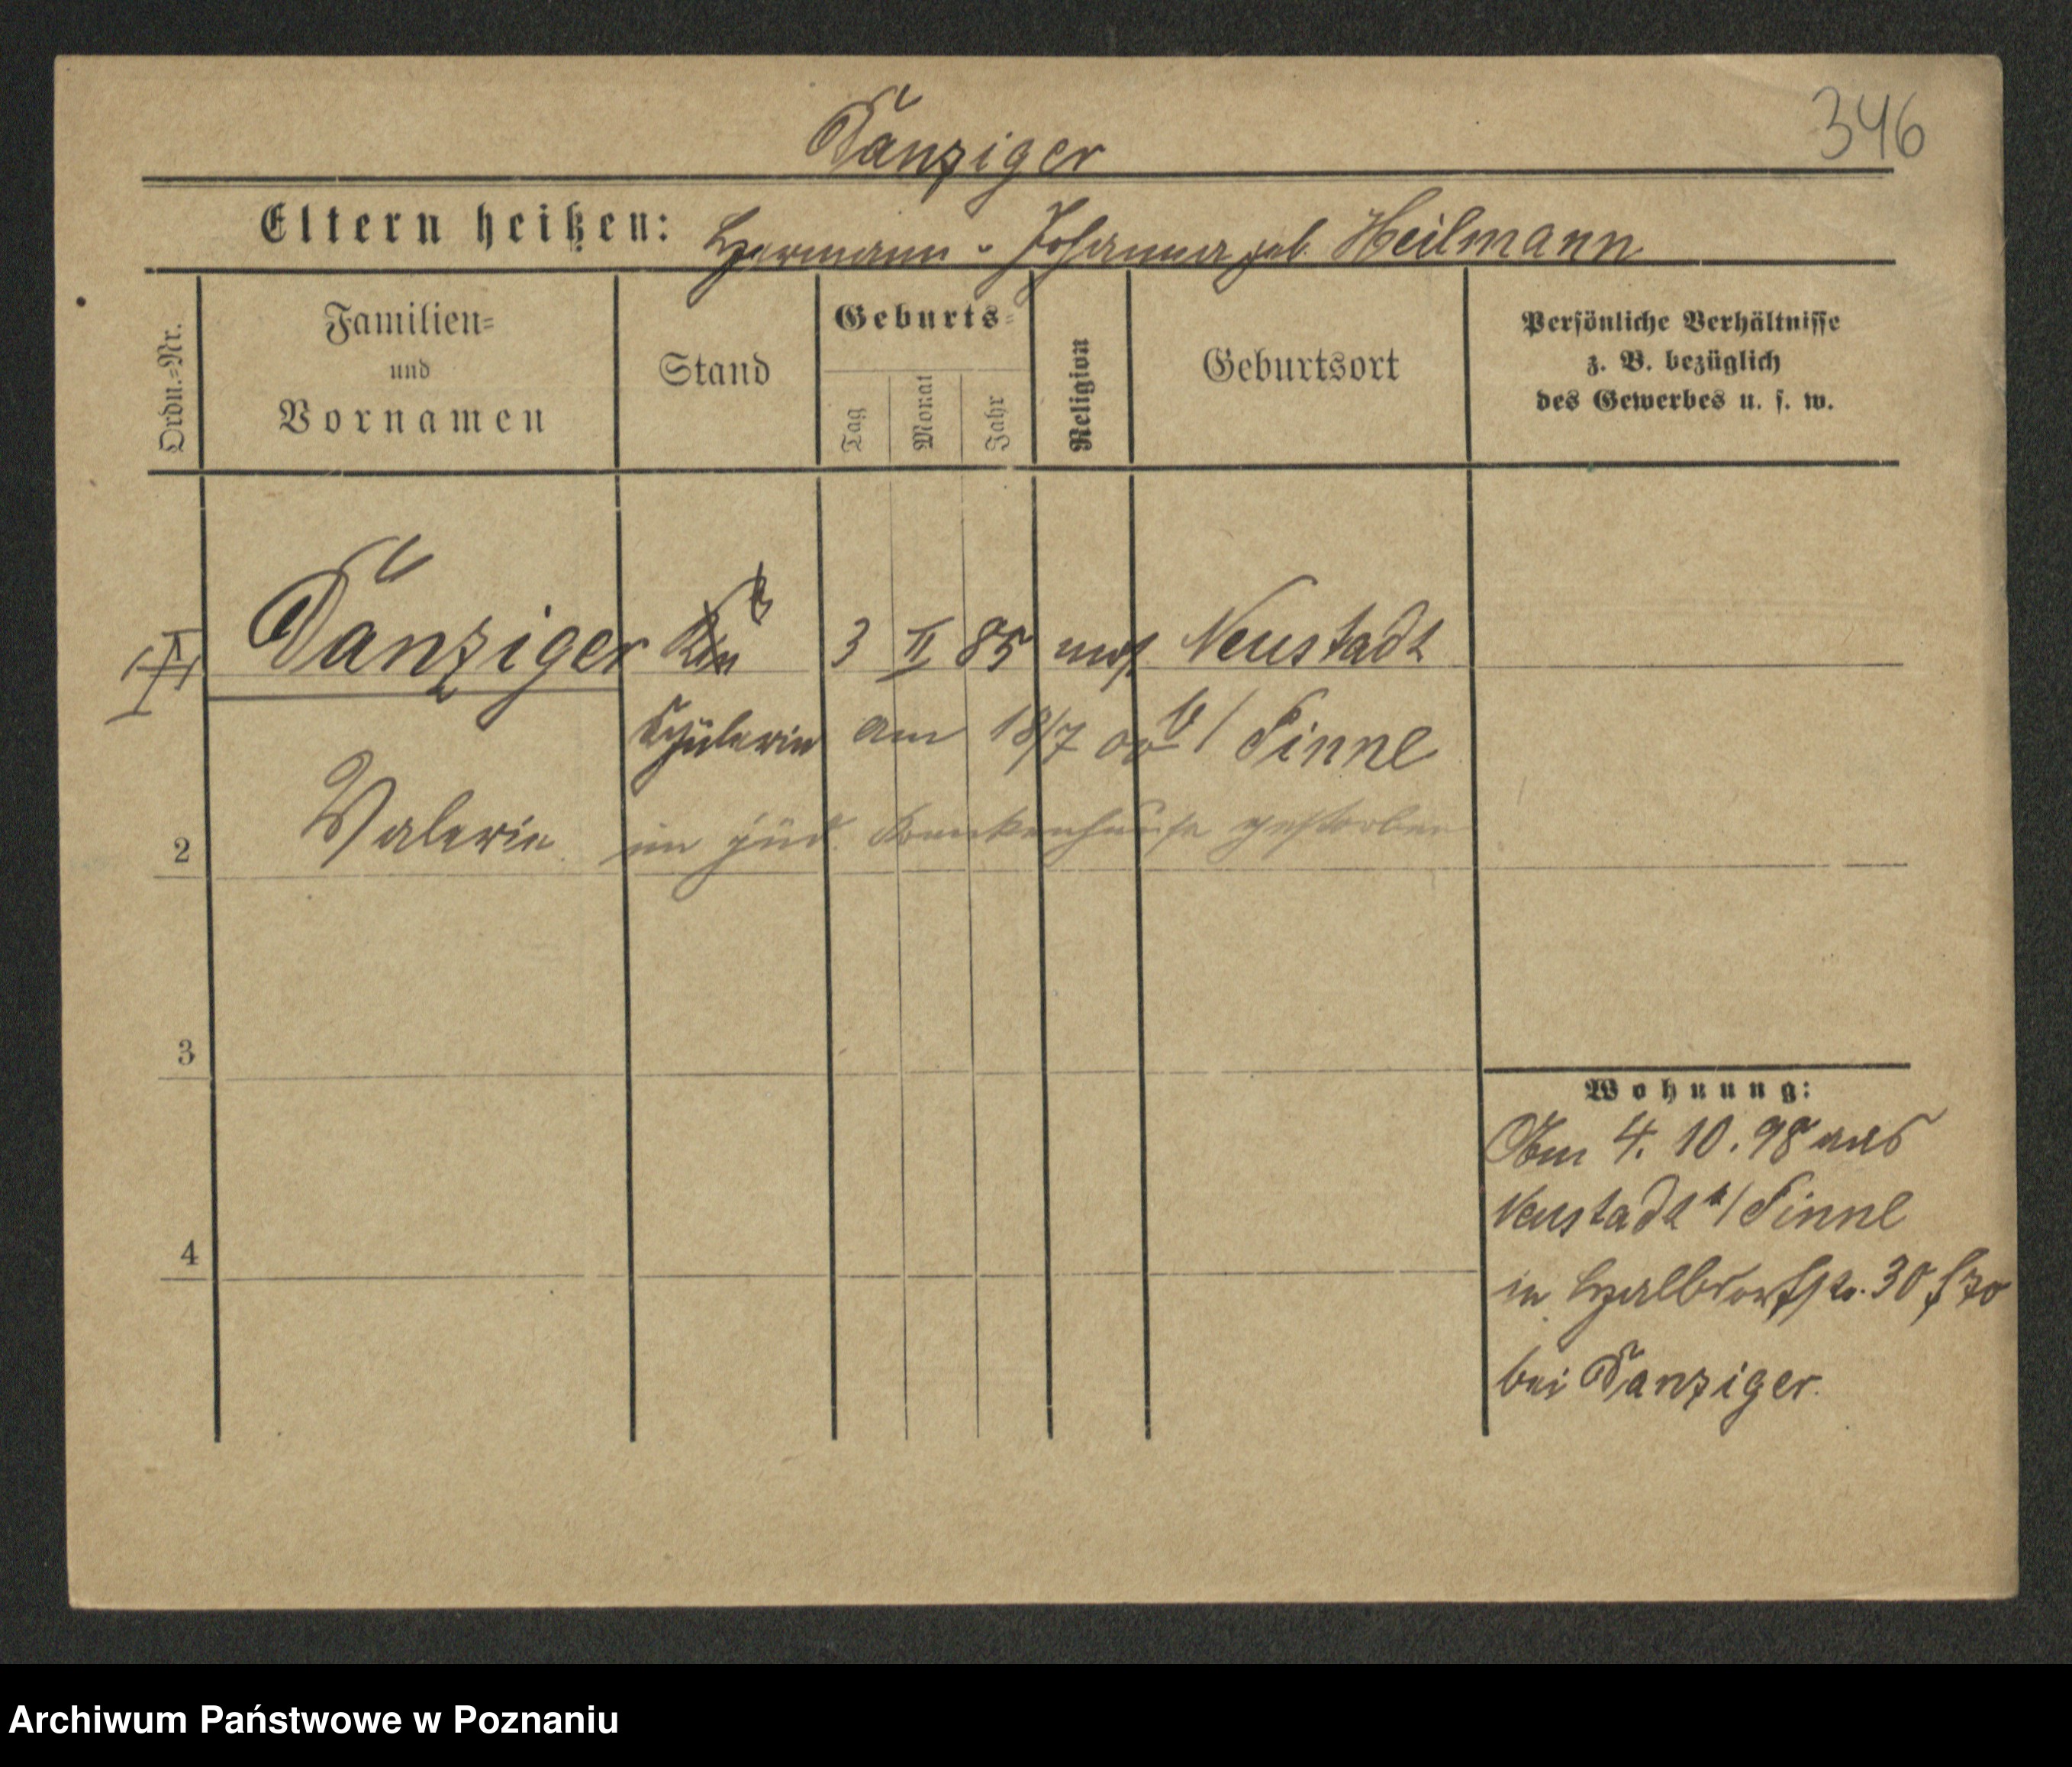 346
Danziger
Eltern heißen: Hermann u. Johanna geb. Heilmann
Ordn.=Nr.
Familien=
und
Vornamen
Stand
Geburts=
Tag
Monat
Jahr
Religion
Geburtsort
Persönliche Verhältnisse
z. B. bezüglich
des Gewerbes u. s. w.
Danziger 3 II 85 mos Neustadt
Schülerin am 18/7 00 b/ Pinne
2 Valerie im jüd. Krankenhause gestorben
3
4
Wohnung:
Am 4. 10. 98 aus
Neustadt b/ Pinne
in Halbdorfstr. 30
bei Danziger.
Archiwum Państwowe w Poznaniu